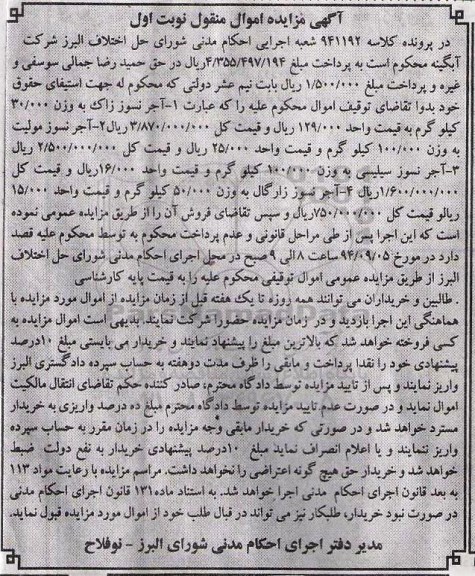 آگهی مزایده اموال منقول نوبت اول
در پرونده کلاسه ۹۴۱۱۹۲ شعبه اجرایی احکام مدنی شورای حل اختلاف البرز شرکت
آبگینه محکوم است به پرداخت مبلغ ۴/۳۵۵/۴۹۷/۱۹۴ریال در حق حمید رضا جمالی سوسفی و
غیره و پرداخت مبلغ ۱/۵۰۰/۰۰۰ بابت نیم عشر دولتی که محکوم له جهت استیفای حقوق
خود بدوا تقاضای توقیف اموال محکوم علیه را که عبارت ۱-آجر نسوز زاک به وزن ۳۰/۰۰۰
کیلو گرم به قیمت واحد ۱۲۹/۰۰۰ ریال و قیمت کل ۳/۸۷۰/۰۰۰/۰۰۰ ریال۲-آجر نسوز مولیت
به وزن ۱۰۰/۰۰۰ کیلو گرم و قیمت واحد ۲۵/۰۰۰ ریال و قیمت کل ۲/۵۰۰/۰۰۰/۰۰۰ ریال
۳-آجر نسوز سیلیسی به وزن ۱۰۰/۰۰۰ کیلو گرم و قیمت واحد ۱۶/۰۰۰ریال و قیمت کل
۱/۶۰۰/۰۰۰/۰۰۰ریال ۴-آجر نسوز زارگال به وزن ۵۰/۰۰۰ کیلو گرم و قیمت واحد ۱۵/۰۰۰
ریالو قیمت کل ۷۵۰/۰۰۰/۰۰۰ریال و سپس تقاضای فروش آن را از طریق مزایده عمومی نموده
است که این اجرا پس از طی مراحل قانونی و عدم پرداخت محکوم به توسط محکوم علیه قصد
دارد در مورخ ۹۴/۰۹/۰۵ ساعت ۸ الی ۹ صبح در محل اجرای احکام مدنی شورای حل اختلاف
البرز از طریق مزایده عمومی اموال توقیفی محکوم علیه را به قیمت پایه کارشناسی
. طالبین و خریداران می توانند همه روزه تا یک هفته قبل از زمان مزایده از اموال مورد مزایده با
هماهنگی این اجرا بازدید و در زمان مزایده حضورا شرکت نمایند. بدیهی است اموال مزایده به
کسی فروخته خواهد شد که بالاترین مبلغ را پیشنهاد نمایند و خریدار می بایستی مبلغ ۱۰درصد
پیشنهادی خود را نقدا پرداخت و مابقی را ظرف مدت دوهفته به حساب سپرده دادگستری البرز
واریز نمایند و پس از تایید مزایده توسط دادگاه محترم، صادر کننده حکم تقاضای انتقال مالکیت
اموال نماید و در صورت عدم تایید مزایده توسط دادگاه محترم مبلغ ده درصد واریزی به خریدار
مسترد خواهد شد و در صورتی که خریدار مابقی وجه مزایده را در زمان مقرر به حساب سپرده
واریز ننمایند و یا اعلام انصراف نماید مبلغ ۱۰درصد پیشنهادی خریدار به نفع دولت ضبط
خواهد شد و خریدار حق هیچ گونه اعتراضی را نخواهد داشت. مراسم مزایده با رعایت مواد ۱۱۳
به بعد قانون اجرای احکام مدنی اجرا خواهد شد. به استناد ماده ۱۳۱ قانون اجرای احکام مدنی
در صورت نبود خریدار، طلبکار نیز می تواند در قبال طلب خود از اموال مورد مزایده قبول نماید.
مدیر دفتر اجرای احکام مدنی شورای البرز - نوفلاح